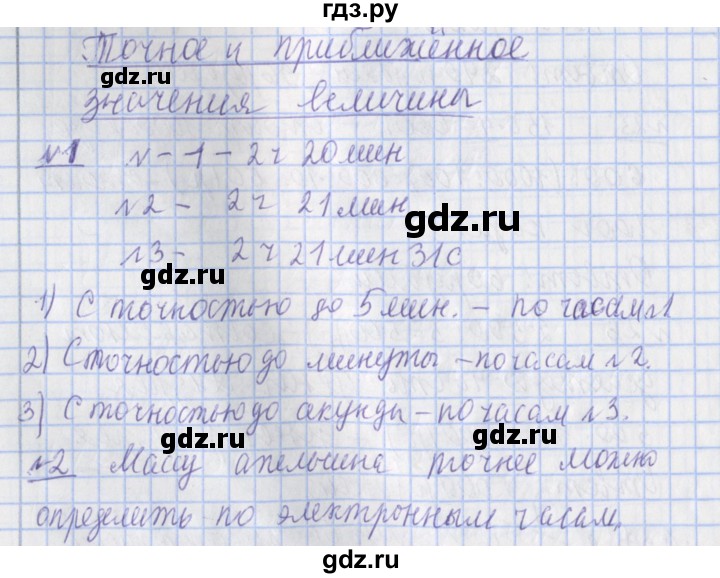 гдз.ру
Точное и приближённое
gdz.ru
gdz.ru
значения величины
№1 №-1-2ч 20мин
№2 - 2ч 21мин
gdz.ru
№3 - 2ч 21мин 31с
gdz.ru
1) С точностью до 5мин. - по часам №1
2) С точностью до минуты - по часам №2.
3) С точностью до акунды - по часам №3.
gdz.ru
gdz.ru
№2 Массу апельсина точнее можно
определить по электронным часам.
gdz.ru
gdz.ru